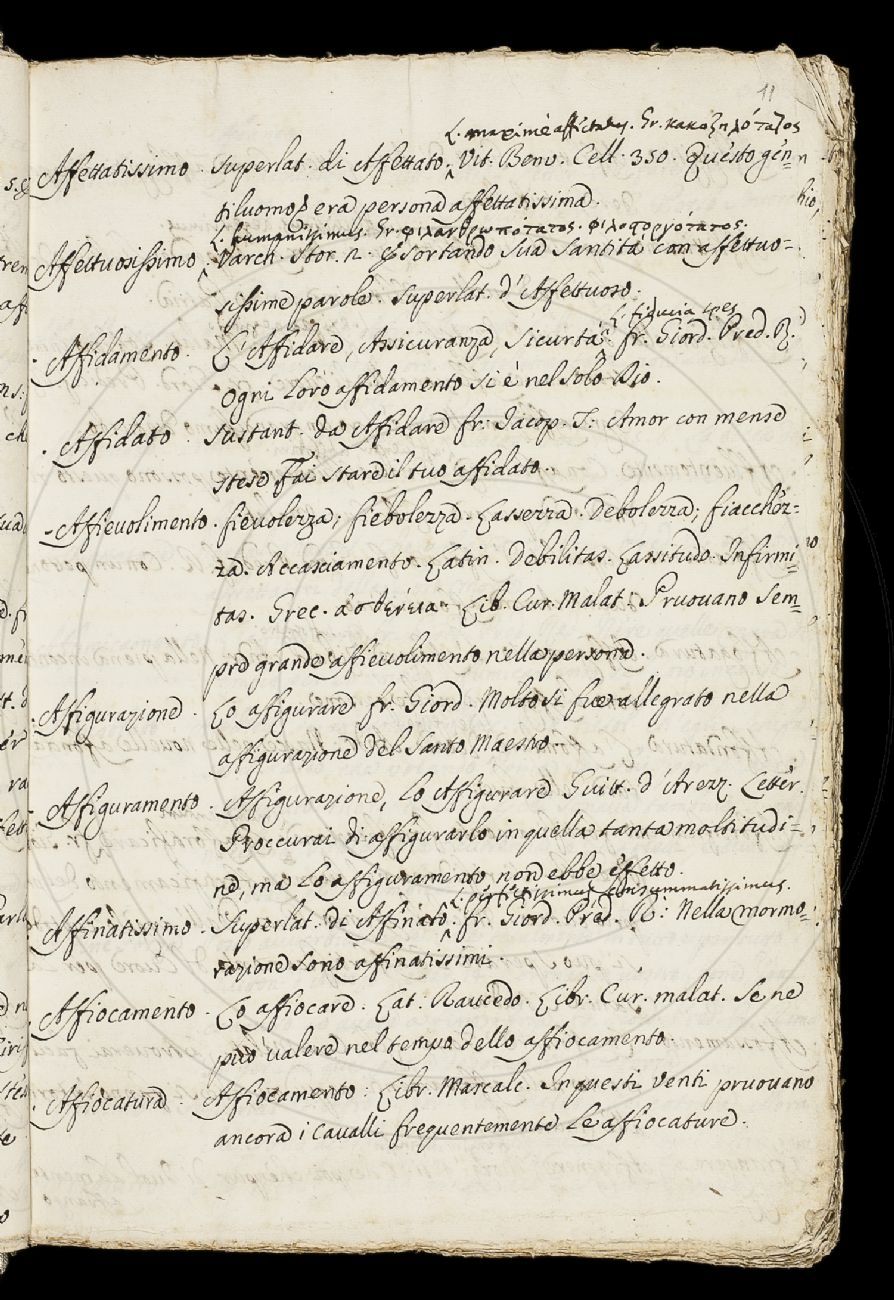 11
L. maximè affectatus. Gr. κακοζηλότατος
Affettatissimo. Superlat. di Affettato, Vit. Benv. Cell. 350. Questo gen=
tiluomo era persona affettatissima.
L. humanissimus. Gr. φιλανθρωπότατος. φιλοστοργότατος.
Affettuosissimo. Varch. Stor. 2. Esortando sua Santità con affettuo=
sissime parole. Superlat. d'Affettuoso.
L. fiducia spes
Affidamento. L'Affidare, Assicuranza, Sicurtà. fr. Giord. Pred. R.
Ogni loro affidamento si è nel solo Dio.
Affidato. Sustant. da Affidare fr: Jacop. T: Amor con mense
stese Fai stare il tuo affidato.
Affievolimento. fievolezza; fiebolezza. Lassezza. Debolezza; fiacchez=
za. Accasciamento. Latin. Debilitas. Lassitudo. Infirmi=
tas. Grec. ἀσθένεια. Lib. Cur. Malat: Pruovano Sem=
pre grande affievolimento nella persona.
Affigurazione. Lo affigurare fr. Giord. Molto si fue allegrato nella
affigurazione del Santo Maestro.
Affiguramento. Affigurazione, Lo Affigurare Guitt. d'Arezz. Letter.
Proccurai di affigurarlo in quella tanta moltitudi=
ne, ma lo affiguramento non ebbe effetto.
L. perfectissimus consummatissimus.
Affinatissimo. Superlat. di Affinato. fr. Giord. Pred. R: Nella mormo=
razione sono affinatissimi.
Affiocamento. Lo affiocare. Lat. Raucedo. Libr. Cur. malat. Se ne
può valere nel tempo dello affiocamento.
Affiocatura. Affiocamento: Libr. Mascalc. In questi venti pruovano
ancora i cavalli frequentemente le affiocature.